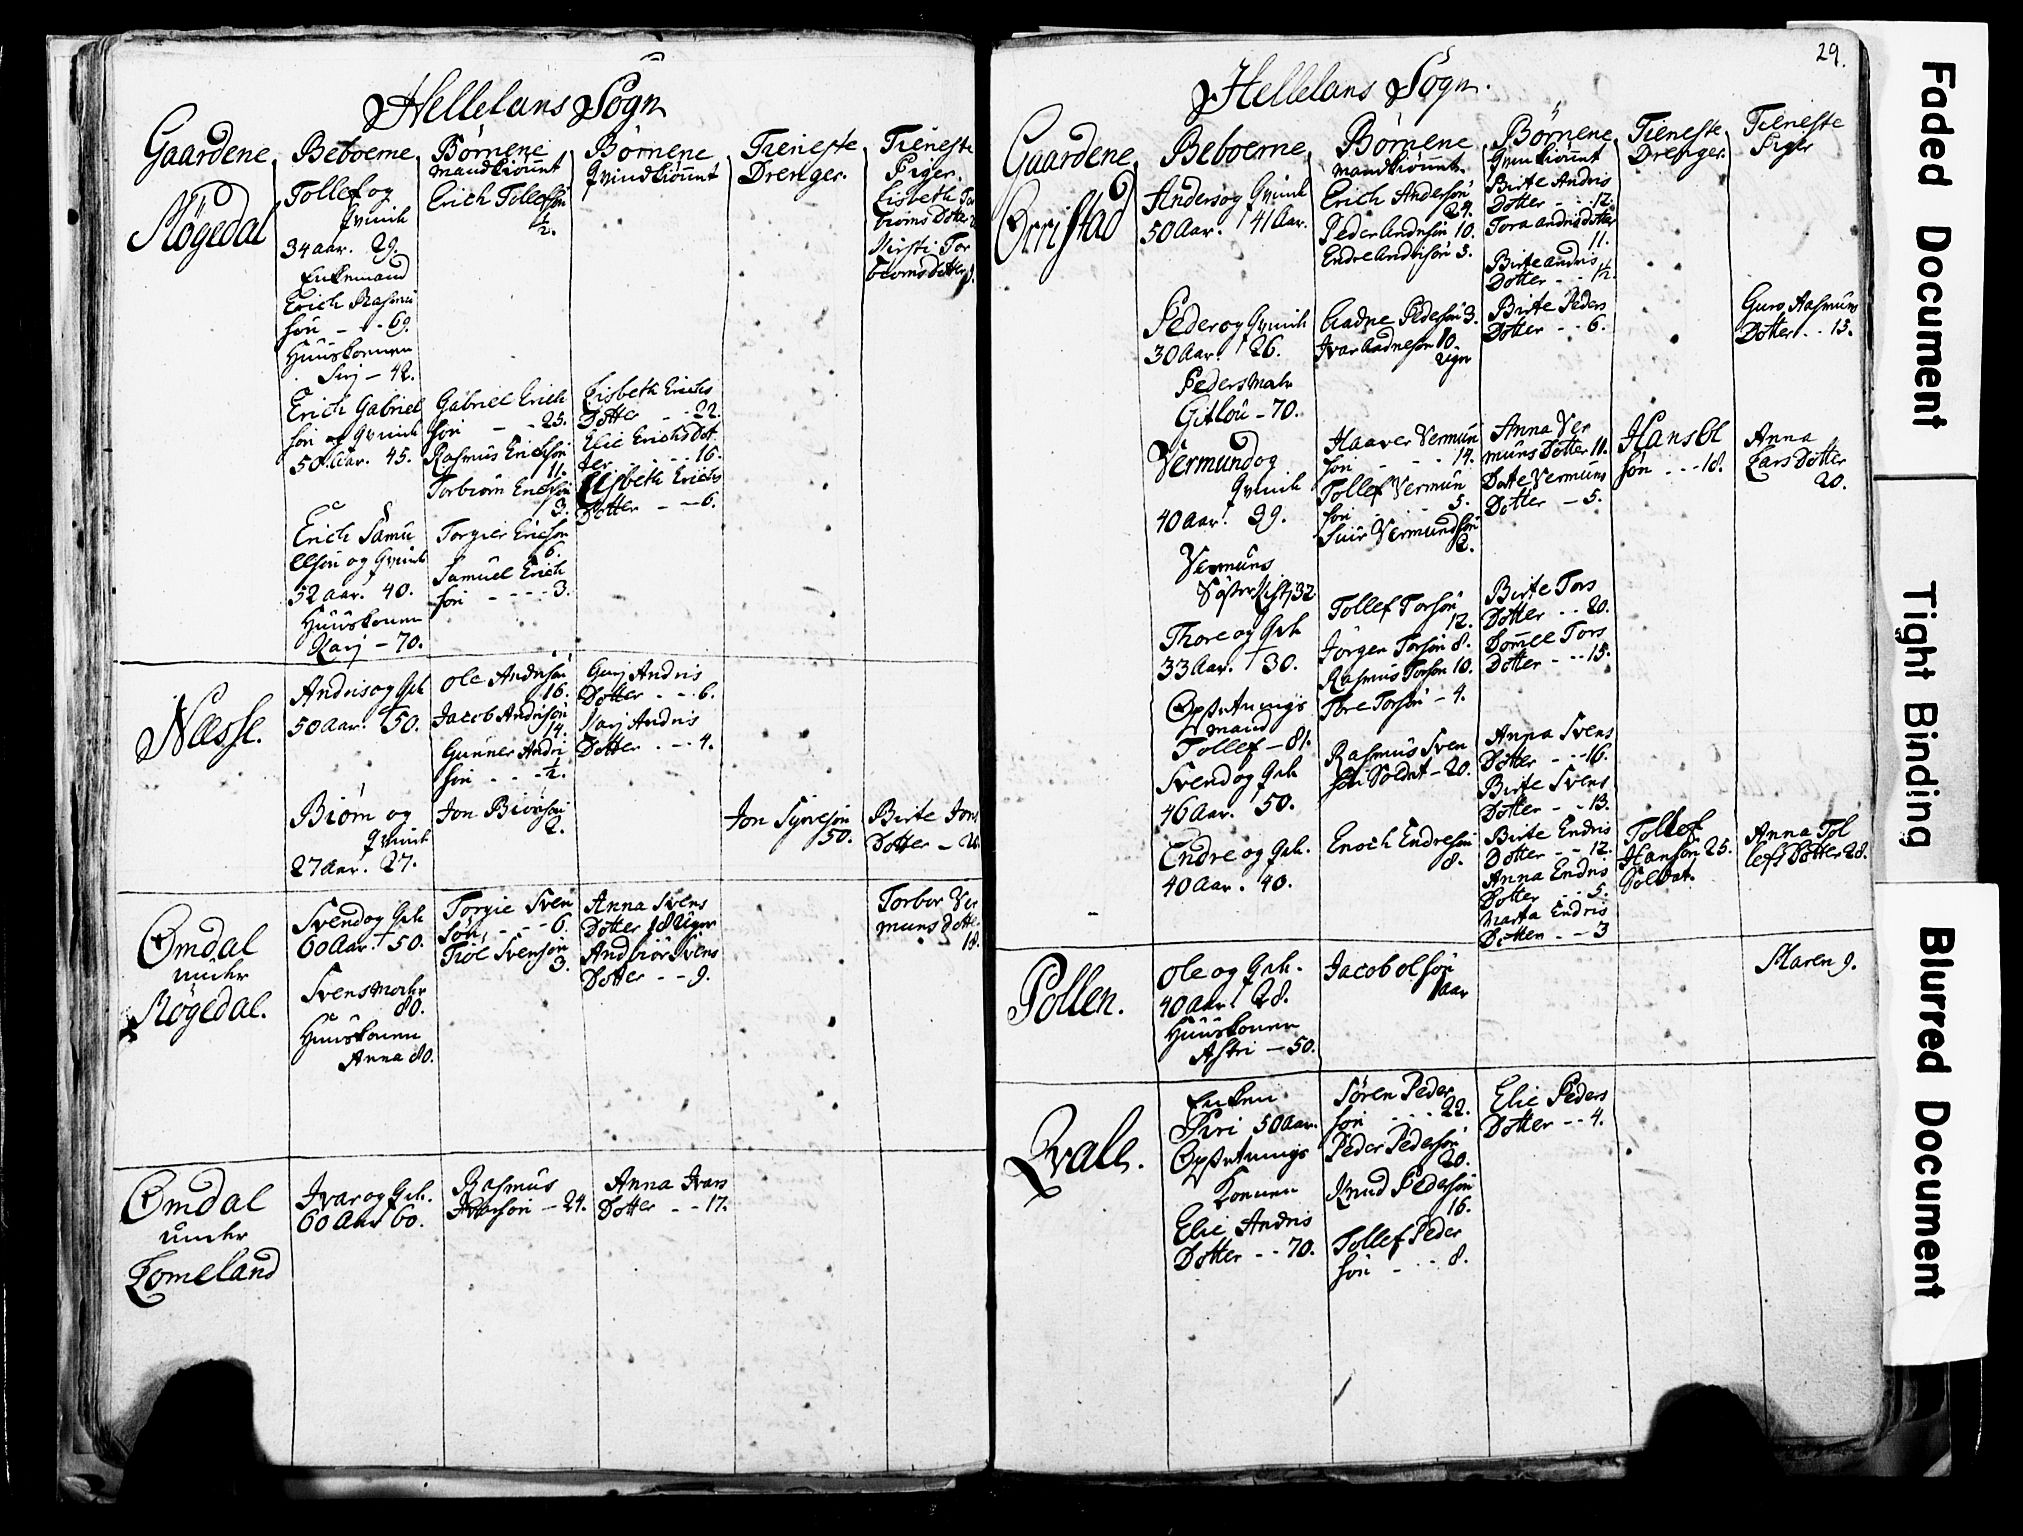 Hellelans Sogn
Gaardene
Beboerne
Børnene
mandkiønnt
Børnene
Qvindkiønnt
Tieneste
Drenger.
Tieneste
Piger.
Møgedal
Tollef og
Qvinde
34 aar. 29.
Enkemand
Erich Rasmu
søn - - 69.
Huuskonen
Sirj - 42.
Erich Tollefsøn
½.
Lisbeth Tor
biørns Dotter
Kirsti Tor
biørnsdotter 9.
Erich Gabriel
søn og Qvinde
50 aar. 45.
Gabriel Erich
søn - - 25.
Rasmus Erichsøn
11.
Torbiørn Erichsøn
3.
Lisbeth Erichs
Dotter - - 22.
Elie Erichs Dot
ter - - - 16.
Elisbeth Erichs
Dotter - - 6.
Erich Samu
elsøn og Qvinde
52 aar. 40.
Huuskonen
Karj - 70.
Torgier Erichsøn
6.
Samuel Erich
søn - - - - 3.
Næsse.
Andris og Qvh
50 aar. 50.
Ole Andrisøn
16.
Jacob Andrisøn
14.
Gunner Andri
søn - - - ½.
Gurj Andris
Dotter - - 6.
Karj Andris
Dotter - - 4.
Biørn og
Qvinde
27 aar. 27.
Jon Biørnsøn
2.
Jon Syvesøn
50.
Birte Jons
Dotter -
Omdal
under
Møgedal.
Svend og Qvh
60 aar. 50.
Svens Moder
80.
Huuskonen
Anna 80.
Torgie Sven
søn, - - - 6.
Tiøl Svensøn
3.
Anna Svens
Dotter 18 Uger
Andbiør Svens
Dotter - - 9.
Torbor Ver
muns Dotter
18.
Omdal
under
Lomeland
Ivar og Qvh.
60 Aar 60.
Rasmus
Ivarsøn - 24.
Anna Ivars
Dotter - - 17.
29.
Hellelans Sogn.
Gaardene
Beboerne
Børnene
mandkiønnt.
Børnene
Qvinkiønnt
Tieneste
Drenger.
Tieneste
Piger
Orristad
Anders og Qvinde
50 Aar. 41 Aar.
Erich Andersøn
24.
Peder Andrisøn 10.
Endre Andrisøn 3.
Birte Andris
Dotter - - 12.
Tora andrisdotter
11.
Birte andris
Dotter - 1½
Peder og Qvinde
30 Aar. 26.
Peders Moder
Gitlou - 70.
Aadne Pedersøn 3.
Ivar Aadnesøn 10.
Uger
Birte Peders
Dotter - - 6.
Guro Aasmuns
Dotter - - 15.
Vermund og
Qvinde
40 aar. 39.
Vermuns
Søster Kisti 32
Haaver Vermun
søn - - - - 14.
Tollef Vermun
søn - - - 5.
Siur Vermundsøn
2.
Anna Ver
muns Dotter 11.
Dorte Vermuns
Dotter - 5.
Hans Ol
søn - - - 18.
Anna
Lars Dotter
20.
Thore og Qvh
33 Aar. 30.
Opsætnings
mand
Tollef - 81.
Tollef Torsøn
12.
Jørgen Torsøn 8.
Rasmus Torsøn 10.
Tore Torsøn - 4.
Birte Tors
Dotter - - 20.
Dorree Tors
Dotter - - - 15.
Svend og Qvh
46 Aar. 50.
Rasmus Sven
søn Soldat - 20.
Anna Svens
Dotter - - 16.
Birte Svens
Dotter - - 13.
Endre og Qvh.
40 Aar. 40.
Enoch Endresøn
8.
Birte Endris
Dotter - - 12.
Anna Endris
Dotter - - 5.
Marta Endris
Dotter - - 3
Tollef
Hansøn 25.
Soldat.
Anna Tol
lefs Dotter 28.
Pollen.
Ole og Qvh.
40 Aar. 28.
Huuskonen
Astri - 50.
Jacob olsøn
1 Aar
Maren 9.
Qvale.
Enken
Siri 50 Aar.
Opsætnings
Konen
Elie Andris
Dotter - - 70.
Søren Peder
søn - - - 22.
Peder Pedersøn
20.
Knud Pedersøn
16.
Tollef Peder
søn - - - 8.
Elie Peders
Dotter - - 4.
Faded Document
Tight Binding
Blurred Document